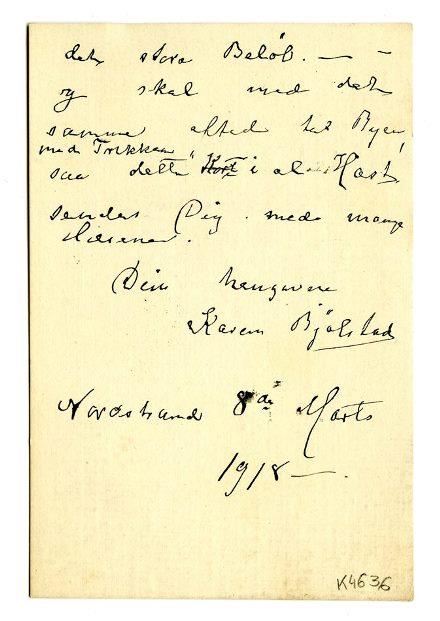 det store Beløb. — –
og skal med det
samme afsted til Byen,
med Trikken
saa dette Kort i al Hast
sendes Dig med mange
Hilsener.
Din hengivne
Karen Bjølstad
Nordstrand 8de Marts
1918 —
K4636